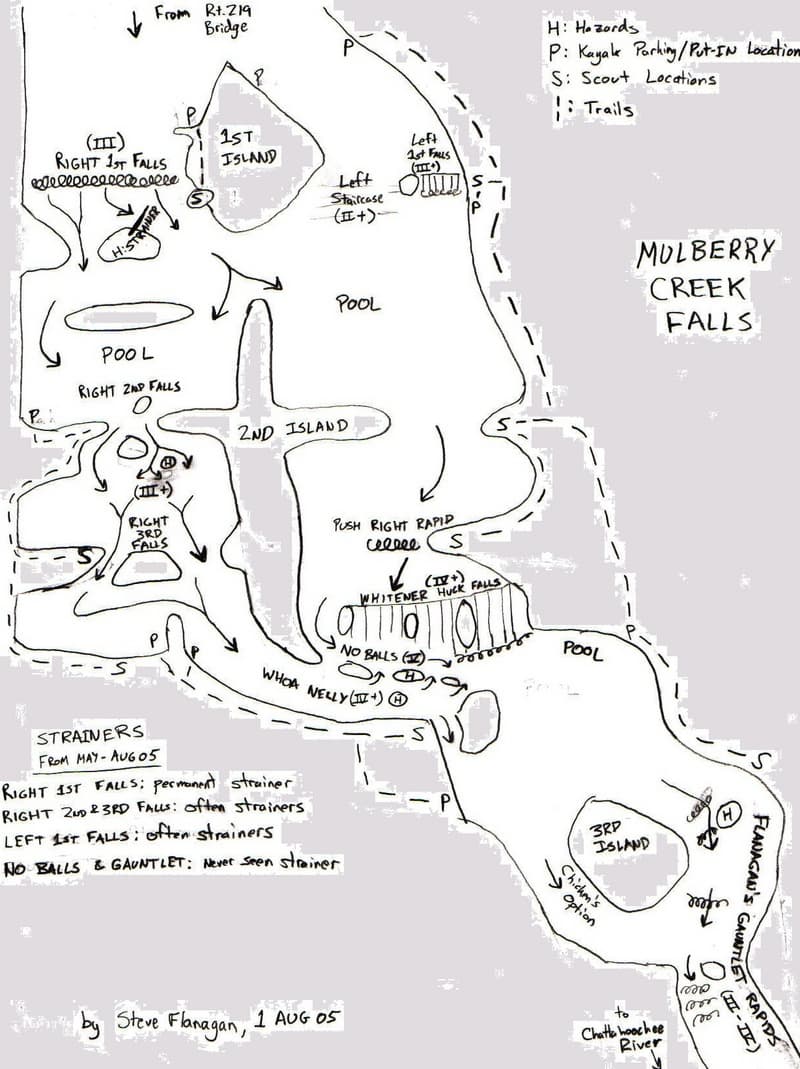 From Rt.219
Bridge
H: Hazards
P: Kayak Parking/Put-IN Location
S: Scout Locations
¦: Trails
P
P
P
1ST
ISLAND
S
(III)
RIGHT 1ST FALLS
H: STRAINER
Left
1st Falls
(III+)
Left
Staircase
(II+)
S
P
MULBERRY
CREEK
FALLS
POOL
POOL
RIGHT 2ND FALLS
P
2ND ISLAND
S
H
(III+)
RIGHT
3RD
FALLS
S
PUSH RIGHT RAPID
S
(IV+)
WHITENER HUCK FALLS
P
P
S
NO BALLS (IV)
H
WHOA NELLY (IV+) H
POOL
P
S
S
P
STRAINERS
FROM MAY-AUG05
RIGHT 1ST FALLS: permanent strainer
RIGHT 2ND & 3RD FALLS: often strainers
LEFT 1ST FALLS: often strainers
NO BALLS & GAUNTLET: Never seen strainer
3RD
ISLAND
Chicken's
Option
H
FLANAGAN'S GAUNTLET RAPIDS
(III-IV)
by Steve Flanagan, 1 AUG 05
to
Chattahoochee
River